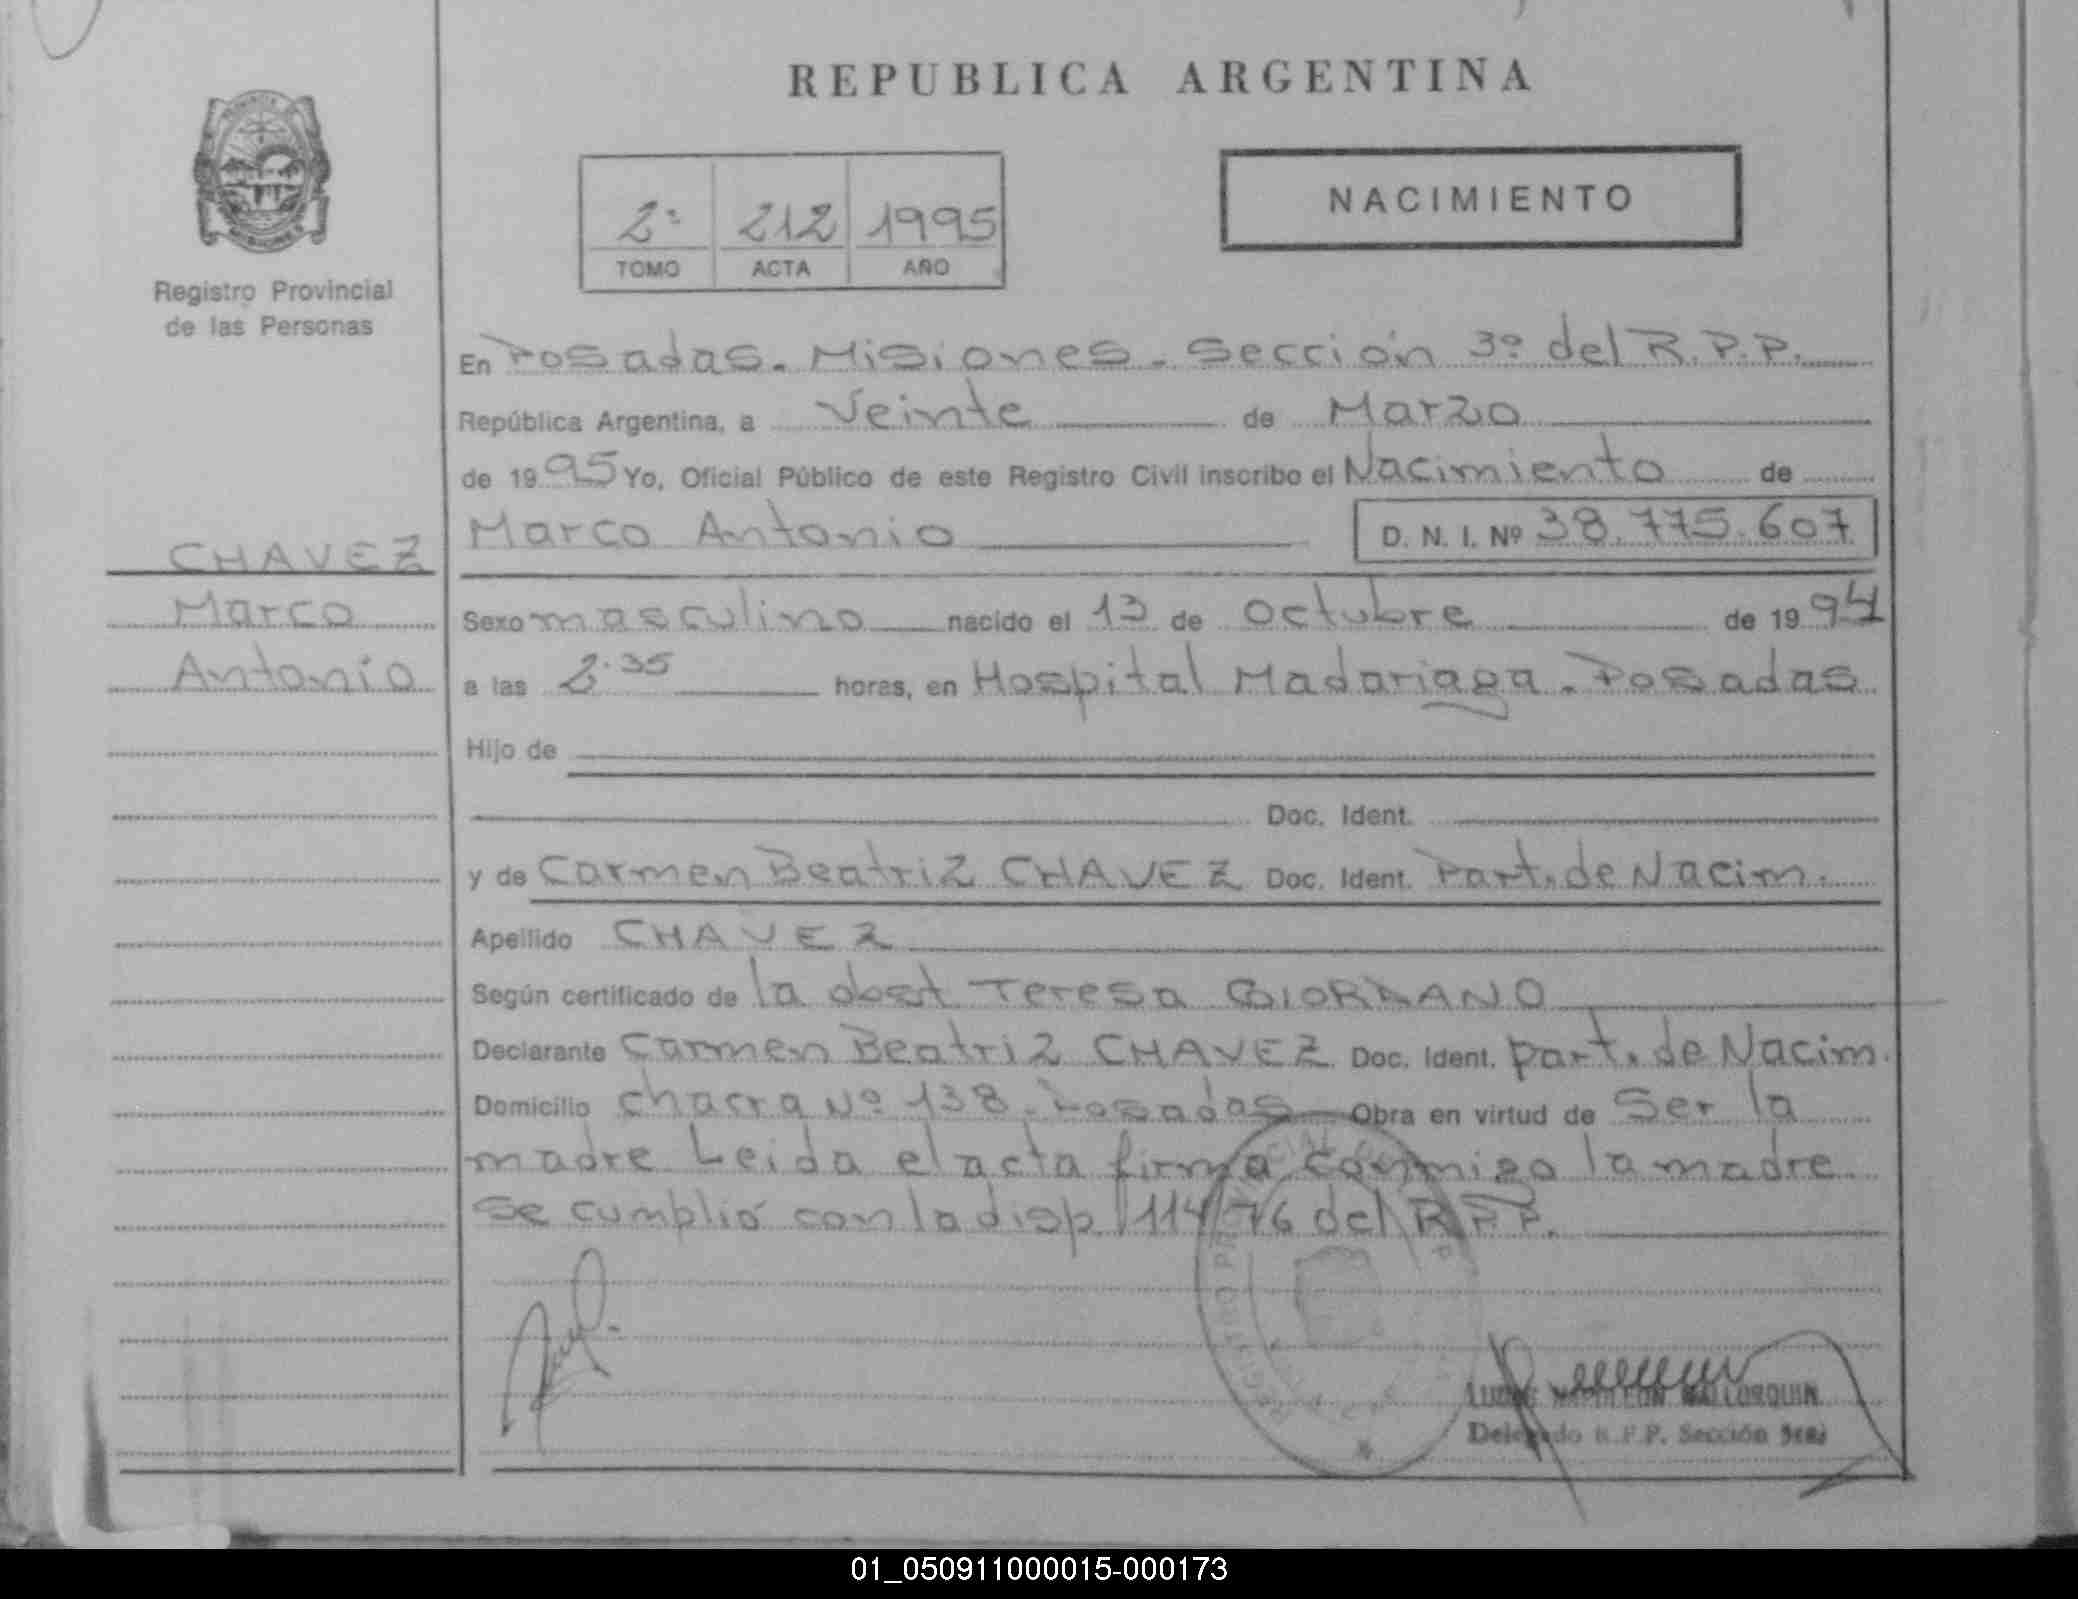 REPUBLICA ARGENTINA
NACIMIENTO
2º 212 1995
TOMO ACTA AÑO
Registro Provincial
de las Personas
En Posadas. Misiones. Sección 3º del R.P.P.
República Argentina, a Veinte de Marzo
de 1995 Yo, Oficial Público de este Registro Civil inscribo el Nacimiento de
Marco Antonio D. N. I. Nº 38.775.607
CHAVEZ
Marco
Antonio
Sexo masculino nacido el 13 de Octubre de 1994
a las 2.35 horas, en Hospital Madariaga. Posadas
Hijo de
Doc. Ident.
y de Carmen Beatriz CHAVEZ Doc. Ident. Part. de Nacim.
Apellido CHAVEZ
Según certificado de la obst Teresa GIORDANO
Declarante Carmen Beatriz CHAVEZ Doc. Ident. part. de Nacim.
Domicilio chacra Nº 138. Posadas Obra en virtud de Ser la
madre Leida el acta firma conmigo la madre
Se cumplió con la disp 114/76 del R.P.P.
REGISTRO
NAPOLEON MALLORQUIN
Delegado R.P.P. Sección 3ra
01_050911000015-000173